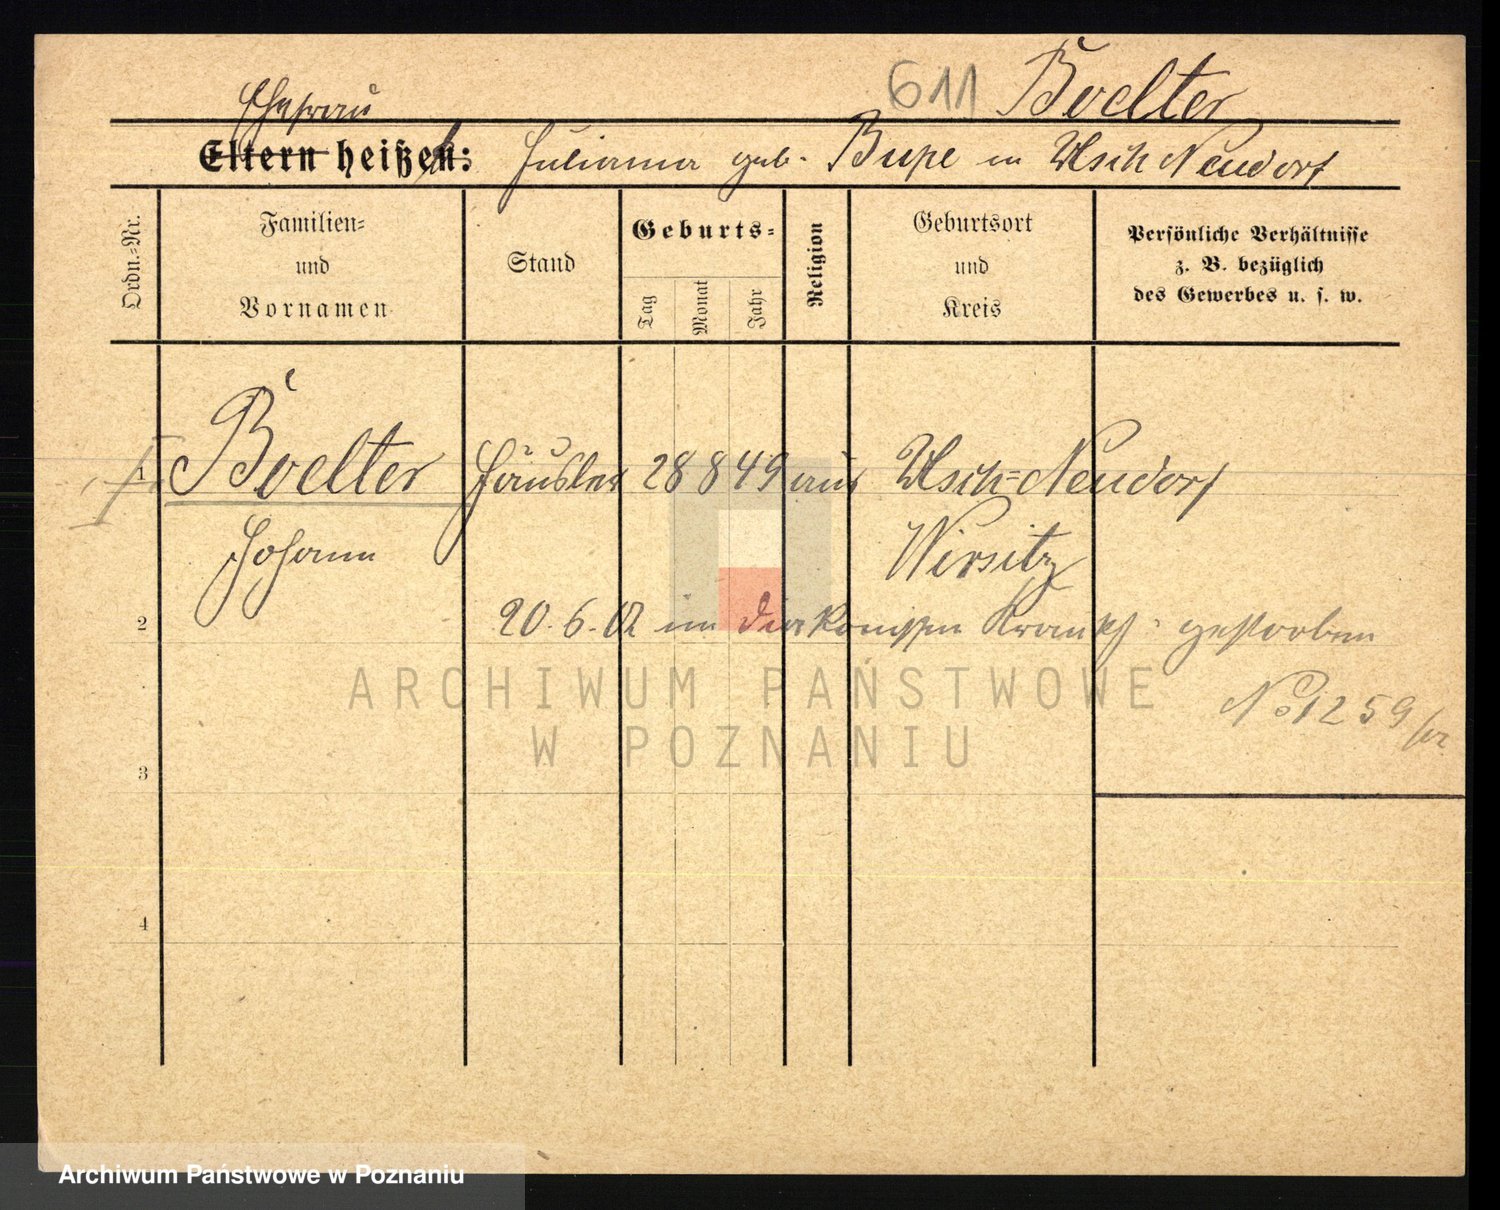 611 Boelter
Ehefrau
Eltern heißen: Julianna geb. Bupe in Usch Neudorf
Ordn.=Nr.
Familien=
und
Vornamen
Stand
Geburts=
Tag
Monat
Jahr
Religion
Geburtsort
und
Kreis
Persönliche Verhältnisse
z. B. bezüglich
des Gewerbes u. s. w.
1 Boelter Häusler 28 8 49 aus Usch=Neudorf
Johann Wirsitz
2 20. 6. 02 im Diakonissen Krankh. gestorben
No 1259
3
4
ARCHIWUM PAŃSTWOWE
W POZNANIU
Archiwum Państwowe w Poznaniu